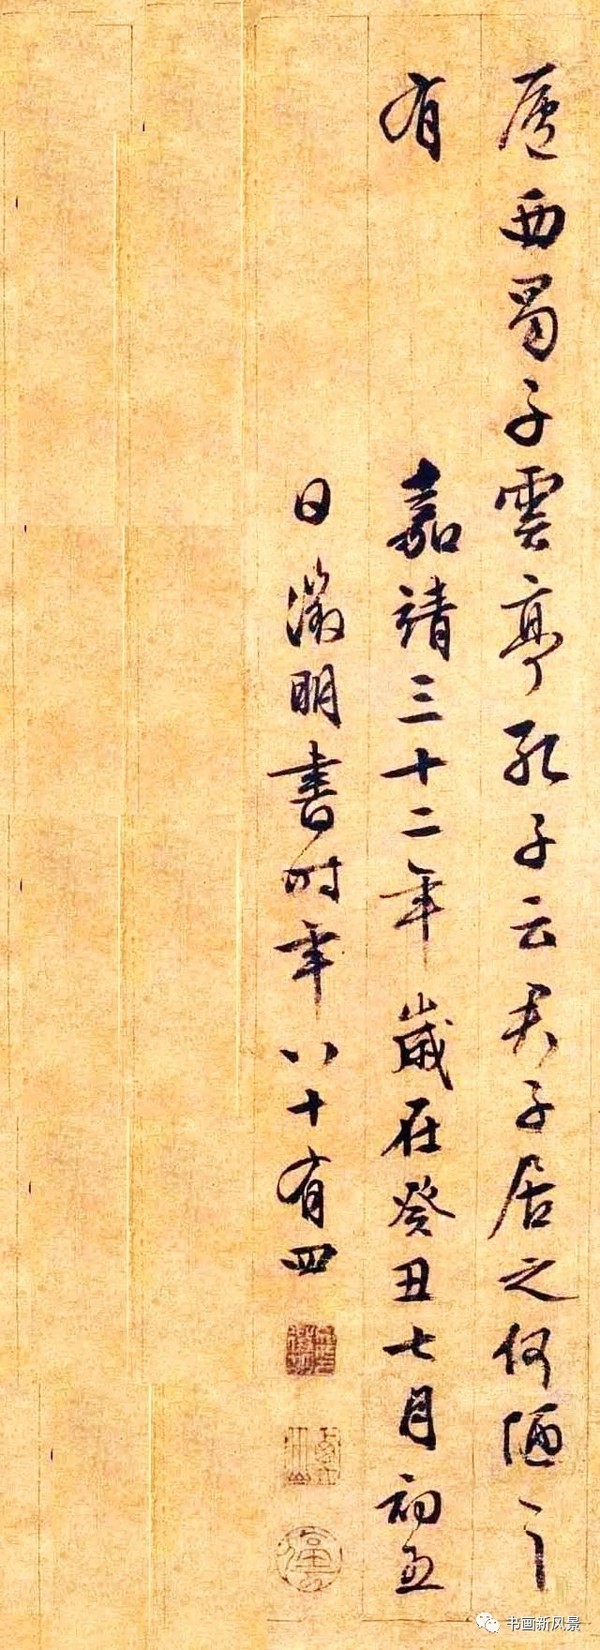 廬西蜀子雲亭孔子云君子居之何陋之
有
嘉靖三十二年歲在癸丑七月初五
日徵明書時年八十有四
书画新风景